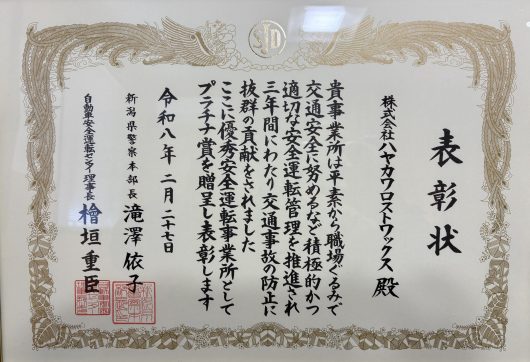 表彰状
株式会社ハヤカワロストワックス 殿
貴事業所は平素から職場ぐるみで
交通安全に努めるなど積極的かつ
適切な安全運転管理を推進され
三年間にわたり交通事故の防止に
抜群の貢献をされました
ここに優秀安全運転事業所として
プラチナ賞を贈呈し表彰します
令和八年二月二十七日
新潟県警察本部長 滝澤依子
自動車安全運転センター理事長 檜垣重臣